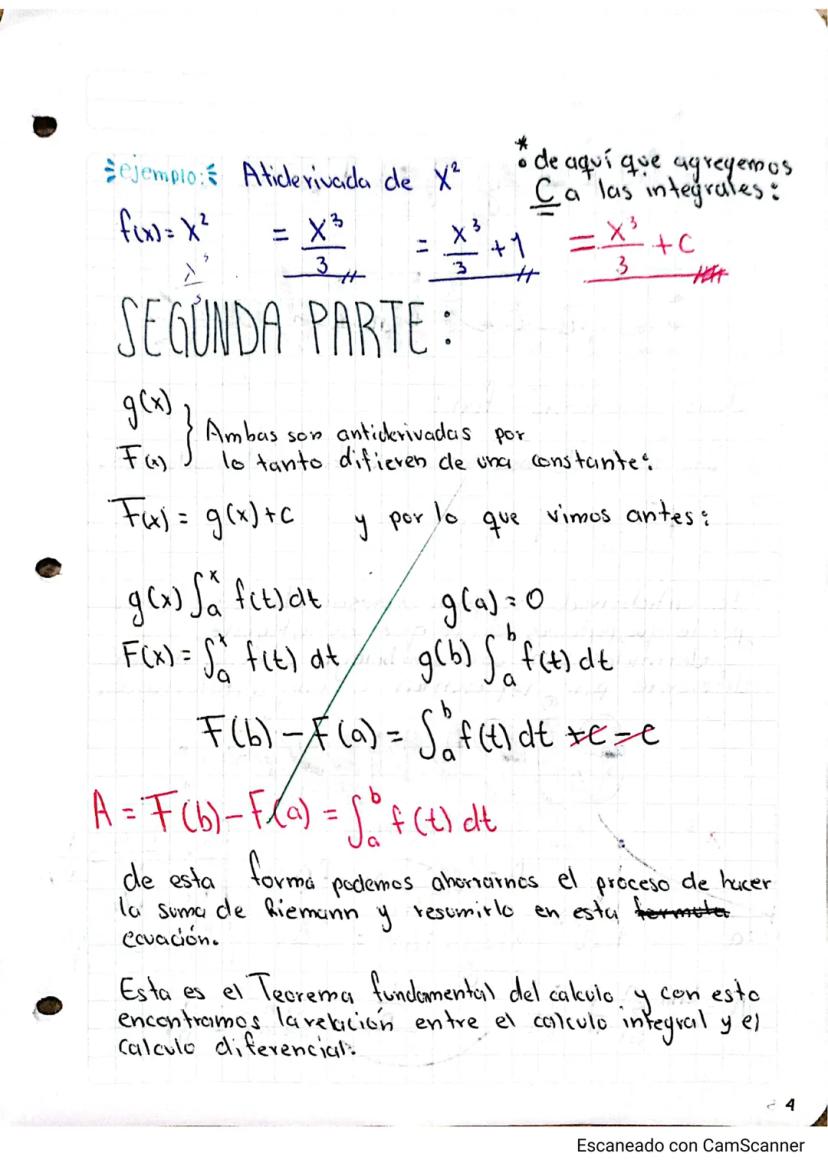 ejemplo: Atiderivada de X²
* • de aquí que agregemos
C a las integrales:
f(x) = X² = X³/3 = X³/3 + 1 = X³/3 + C
SEGUNDA PARTE:
g(x)
F(x) } Ambas son antiderivadas por
lo tanto difieren de una constante:
F(x) = g(x) + C y por lo que vimos antes:
g(x) ∫ₐˣ f(t) dt g(a) = 0
F(x) = ∫ₐˣ f(t) dt g(b) ∫ₐᵇ f(t) dt
F(b) − F(a) = ∫ₐᵇ f(t) dt +c − c
A = F(b) − F(a) = ∫ₐᵇ f(t) dt
de esta forma podemos ahorrarnos el proceso de hacer
la suma de Riemann y resumirlo en esta formula
ecuación.
Esta es el Teorema fundamental del calculo y con esto
encontramos la relación entre el calculo integral y el
calculo diferencial.
4
Escaneado con CamScanner